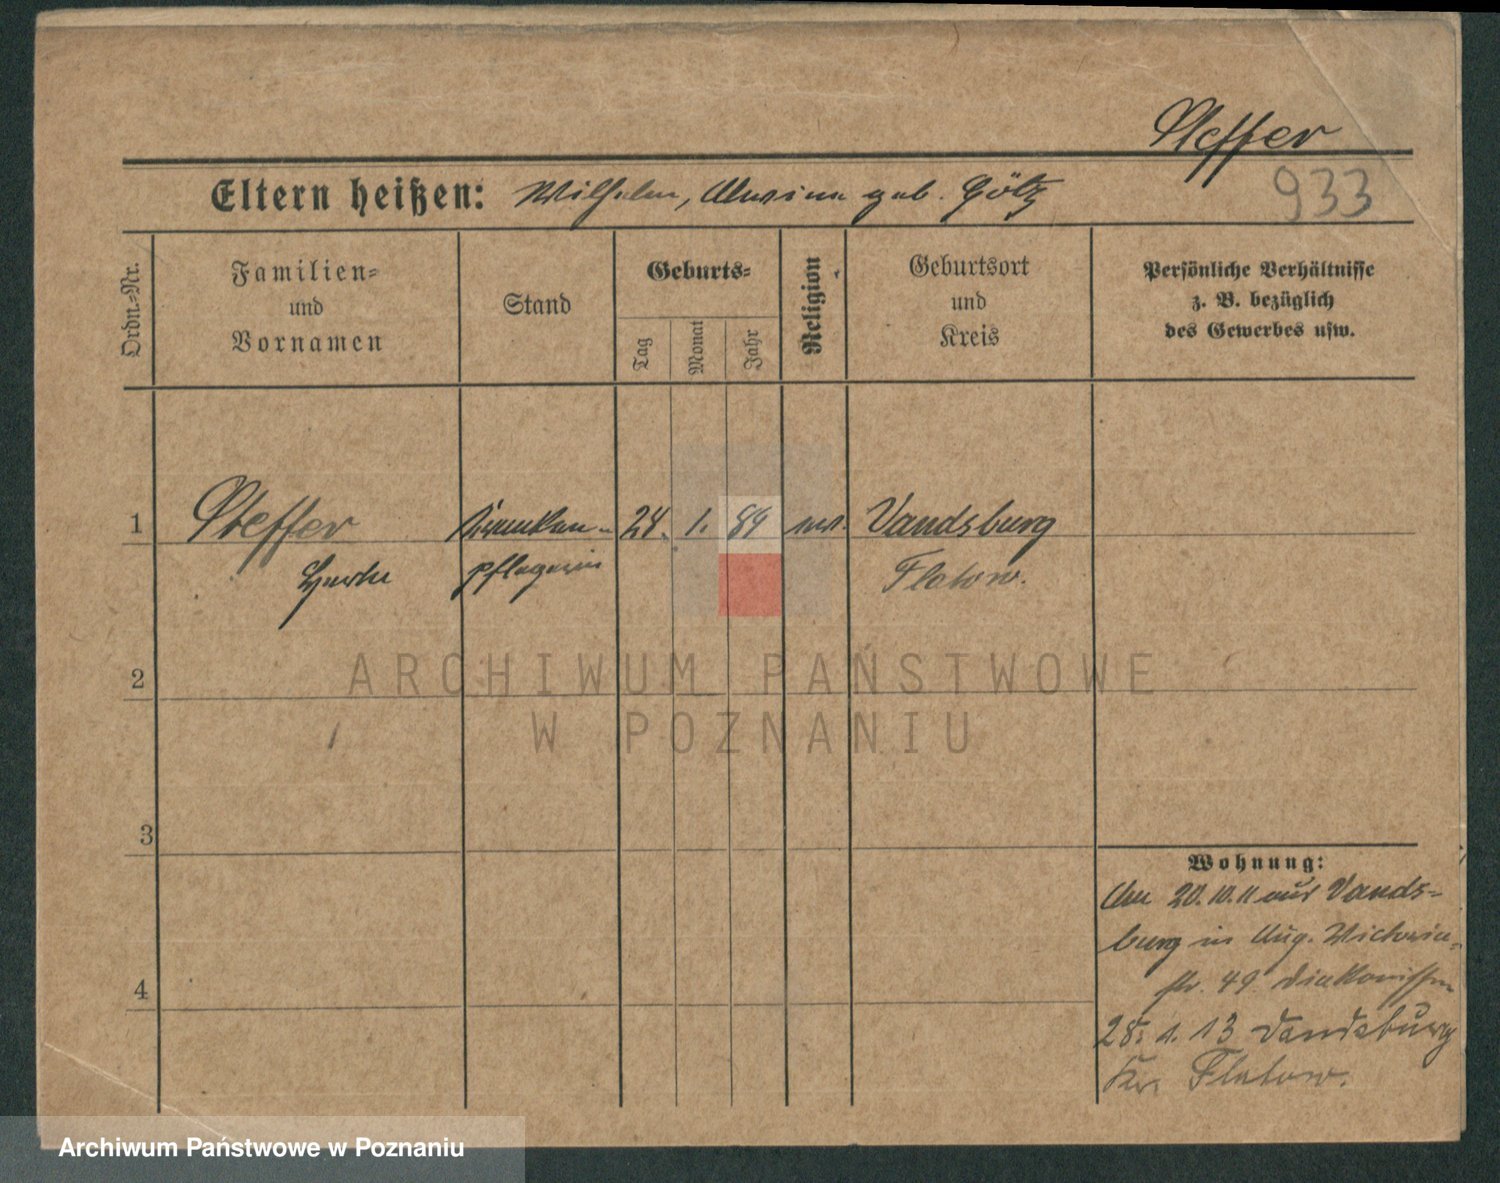 Steffer
Eltern heißen: Wilhelm, geb. Götz
933
Ordn.-Nr.
Familien-
und
Vornamen
Stand
Geburts-
Tag
Monat
Jahr
Religion
Geburtsort
und
Kreis
Persönliche Verhältnisse
z. B. bezüglich
des Gewerbes usw.
1 Steffer Kranken- 24. 1. 89 ev. Vandsburg
pflegerin Flatow.
2
ARCHIWUM PAŃSTWOWE
W POZNANIU
3
4
Wohnung:
20.10.11 aus Vands-
burg in Aug. Victoria-
str. 49. Diakonissen
28. 1. 13 Vandsburg
Kr. Flatow.
Archiwum Państwowe w Poznaniu